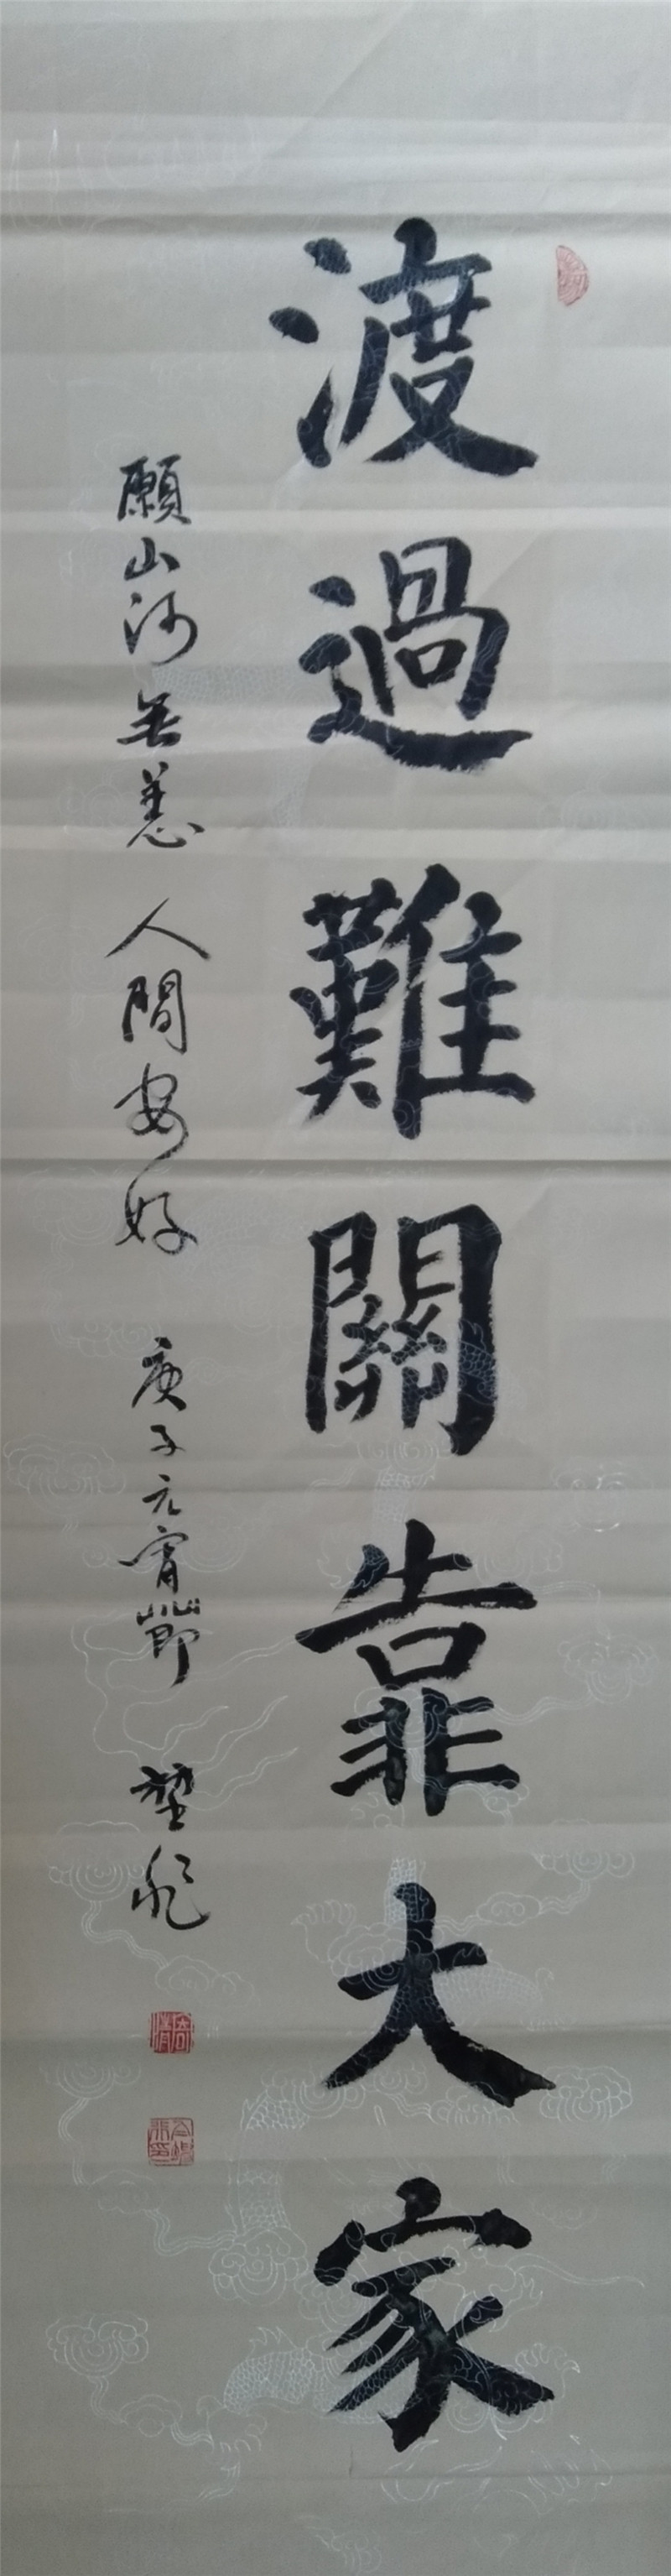 渡過難關靠大家
願山河無恙 人間安好 庚子元宵節